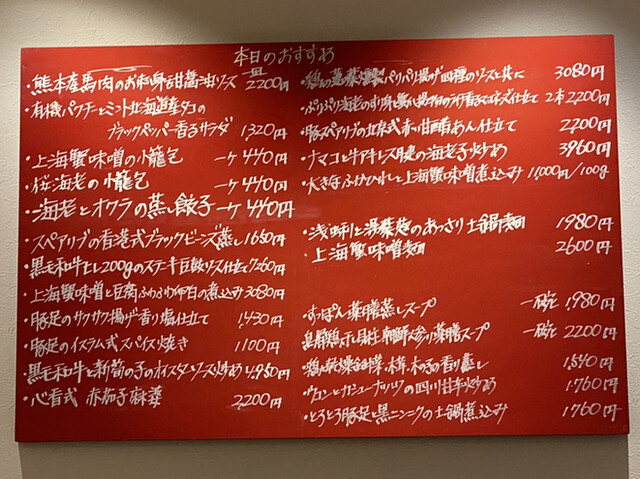 本日のおすすめ
・熊本産馬肉のお刺身甜醤油ソース 一皿 2200円
・有機パクチーとミント北海道産タコの
ブラックペッパー香るサラダ 1,320円
・上海蟹味噌の小籠包 一ケ 440円
・桜海老の小籠包 一ケ 440円
・海老とオクラの蒸し餃子 一ケ 440円
・スペアリブの香港式ブラックビーンズ蒸し 1650円
・黒毛和牛ヒレ200gのステーキ豆豉ソース仕立て 7260円
・上海蟹味噌と豆腐ふわふわ卵白の煮込み 3080円
・豚足のサクサク揚げ香り塩仕立て 1,430円
・豚足のイスラム式スパイス焼き 1100円
・黒毛和牛と新筍の子のオイスターソース炒め 4,950円
・心看式 赤茄子麻婆 2,200円
パリパリ揚げ四種のソースと共に 3080円
・ぷりぷり海老のすり身と 仕立て 2本 2200円
・豚スペアリブの北京式赤い甘酢あん仕立て 2,200円
・ナマコと牛アキレス腱の海老子炒め 3960円
・大きなふかひれと上海蟹味噌煮込み 11,000円/100g
・浅蜊と湯葉 のあっさり土鍋麺 1980円
・上海蟹味噌麺 2600円
・すっぽん薬膳蒸しスープ 一碗 1,980円
・烏骨鶏 干貝柱 朝鮮人参入り薬膳スープ 一碗 2200円
の香り蒸し 1,540円
とカシューナッツの四川甘辛炒め 1,760円
・とろとろ豚足と黒ニンニクの土鍋煮込み 1760円